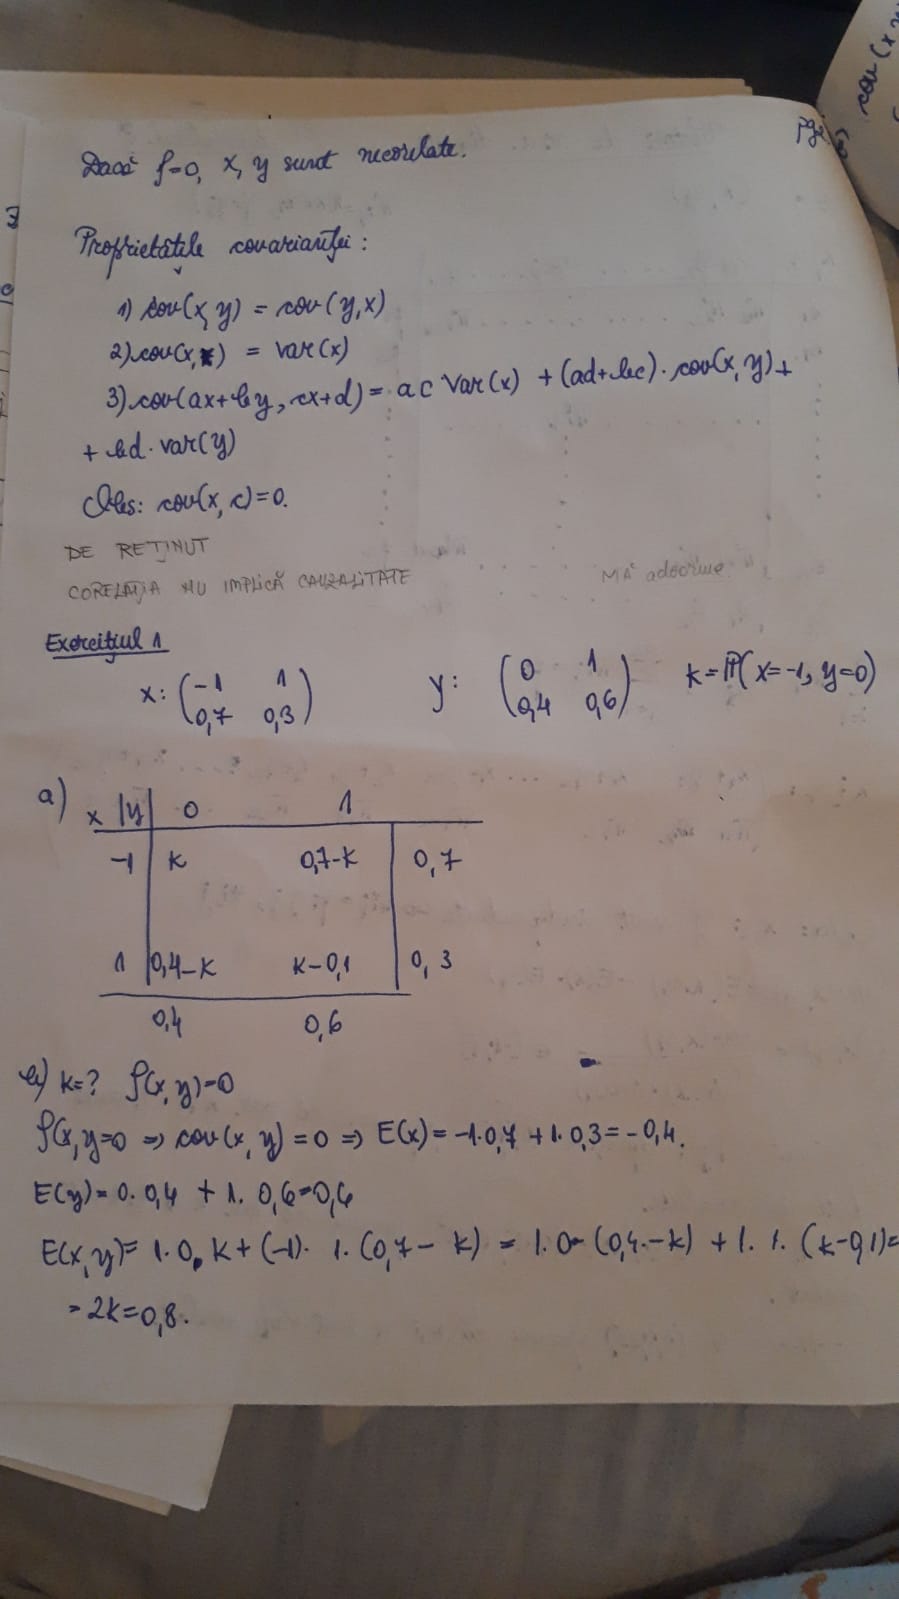 Dacă ρ=0, x, y sunt necorelate.
Proprietățile covarianței:
1) cov(x, y) = cov(y,x)
2) cov(x,x) = var(x)
3) cov(ax+by, cx+d) = ac Var(x) + (ad+bc)·cov(x, y)+
+ bd·var(y)
Obs: cov(x, c)=0.
DE REȚINUT
CORELAȚIA NU IMPLICĂ CAUZALITATE
MĂ adoarme
Exercițiul 1
x: (-1 1
0,7 0,3)
y: (0 1
0,4 0,6)
k=P(x=-1, y=0)
a) x |y| 0 1
-1 k 0,7-k 0,7
1 0,4-k k-0,1 0,3
0,4 0,6
b) k=? ρ(x, y)=0
ρ(x, y=0 ⇒ cov(x, y) = 0 ⇒ E(x) = -1·0,7 + 1·0,3 = -0,4.
E(y) = 0·0,4 + 1·0,6=0,6
E(x, y) = 1·0·k + (-1)· 1·(0,7- k) = 1·0·(0,4-k) + 1·1·(k-0,1)=
= 2k=0,8.
cov(x